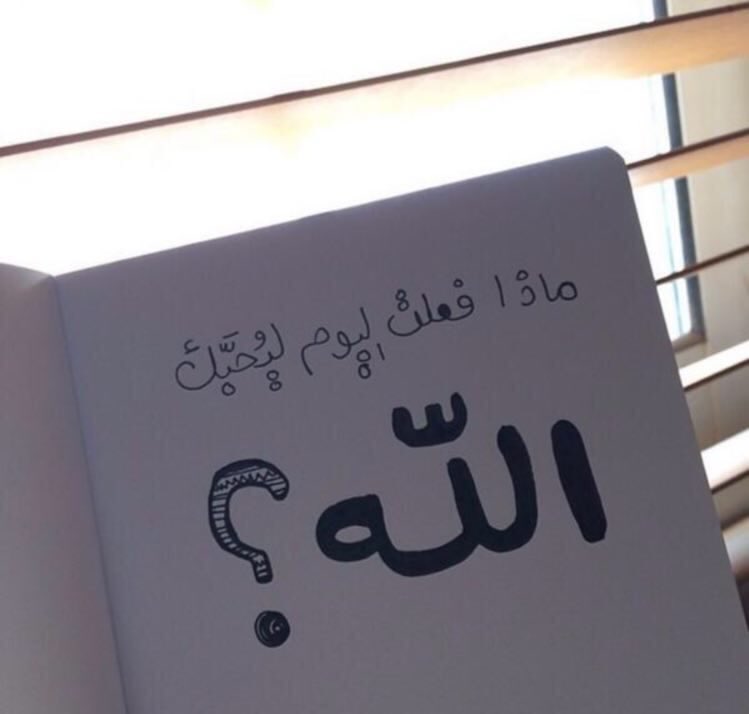 ماذا فعلت ليوم ليُحبَّك
اللّه؟